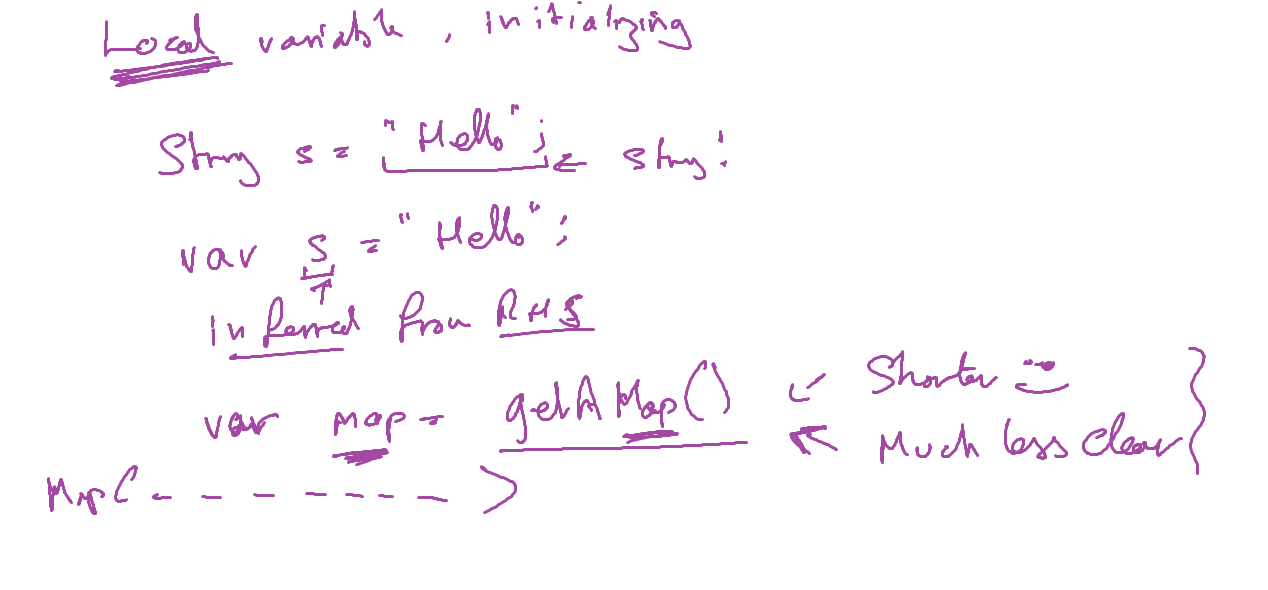 Local variable, initializing
String s = "Hello"; ← string!
var s = "Hello";
Inferred from RHS
var map = getAMap() ← Shorter
Much less clear
Map< - - - - - - - >